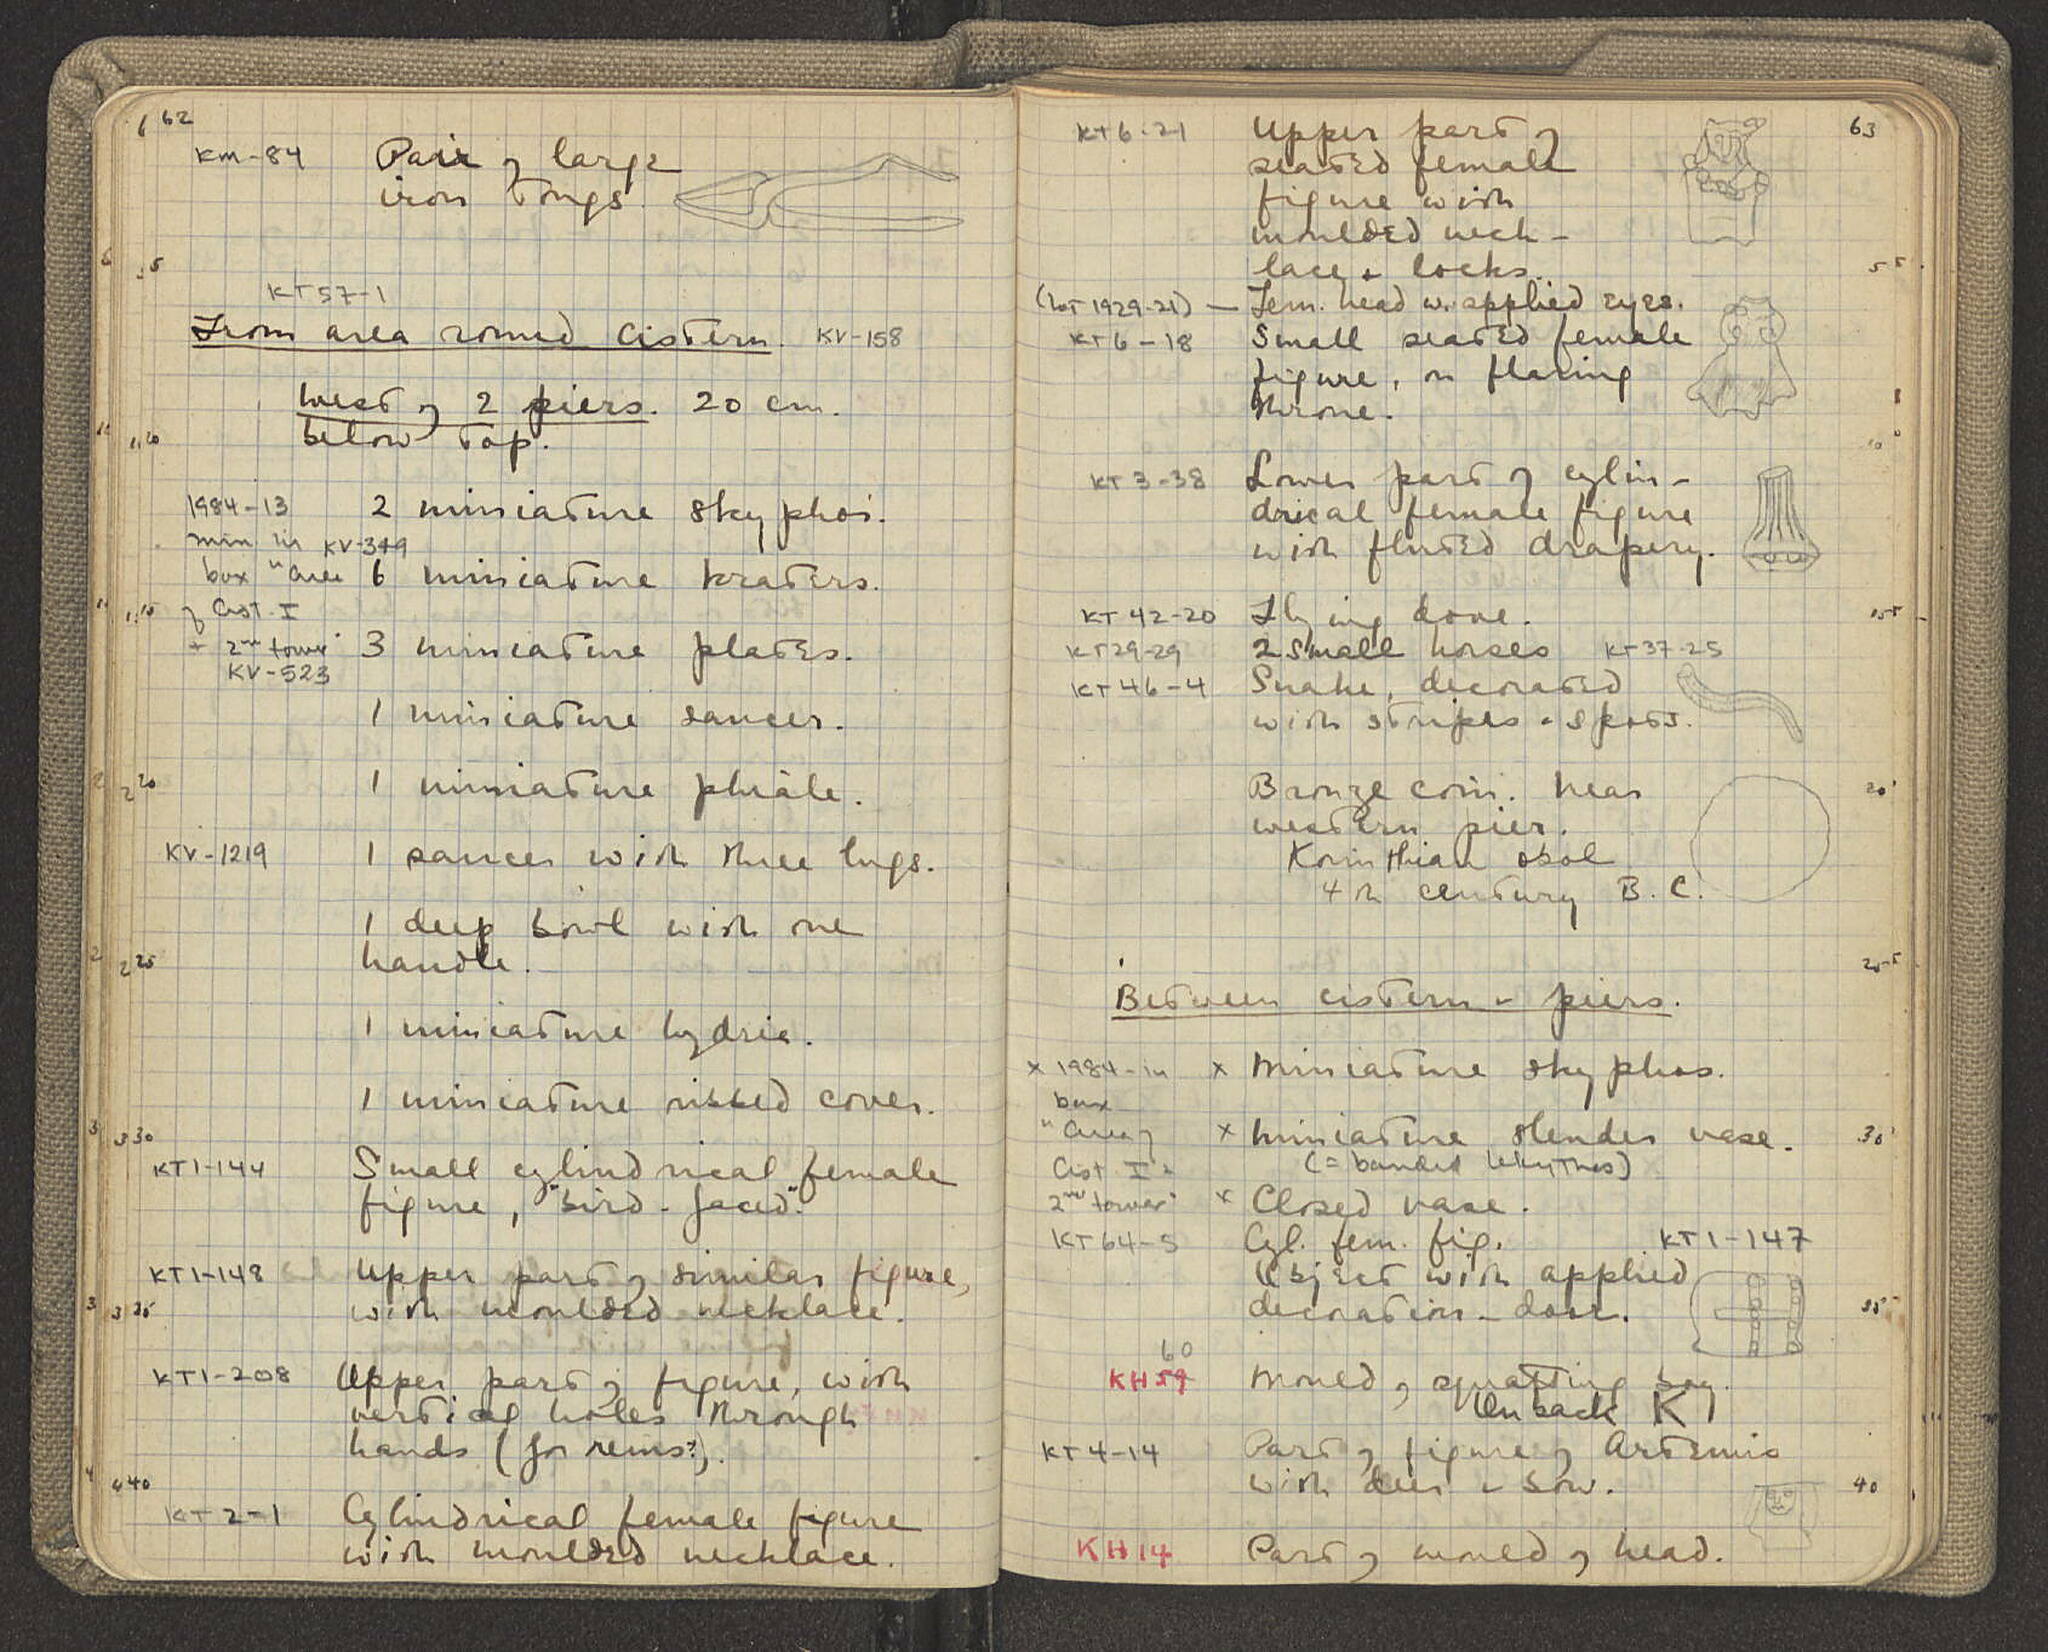 62
KM-84 Pair of large
iron tongs.
KT57-1
From area round cistern. KV-158
West of 2 piers. 20 cm.
below top.
1984-13 2 miniature skyphoi.
min in KV-349
box "Area 6 miniature kraters.
of Cist. I
+ 2nd tower" 3 miniature plates.
KV-523
1 miniature saucer.
1 miniature phiale.
KV-1219 1 saucer with three lugs.
1 deep bowl with one
handle.
1 miniature hydria.
1 miniature ribbed cover.
KT1-144 Small cylindrical female
figure, "bird-faced".
KT1-148 Upper part of similar figure,
with moulded necklace.
KT1-208 Upper part of figure, with
vertical holes through
hands (for reins?).
KT2-1 Cylindrical female figure
with moulded necklace.
63
KT6-21 Upper part of
seated female
figure with
moulded neck-
lace & locks.
(Lot 1929-21) — Fem. head w. applied eyes.
KT6-18 Small seated female
figure, on flaring
throne.
KT3-38 Lower part of cylin-
drical female figure
with fluted drapery.
KT42-20 Flying dove.
KT29-29 2 small horses KT37-25
KT46-4 Snake, decorated
with stripes & spots.
Bronze coin. Near
western pier.
Korinthian obol
4th century B.C.
Between cistern & piers.
x 1984-in x Miniature skyphos.
box
"Area of x Miniature slender vase.
(= banded lekythos)
Cist. I &
2nd tower" x Closed vase.
KT64-5 Cyl. fem. fig. KT1-147
Object with applied
decoration - door.
60
KH59 Mould of squatting boy.
On back K I
KT4-14 Part of figure of Artemis
with deer & bow.
KH14 Part of mould of head.